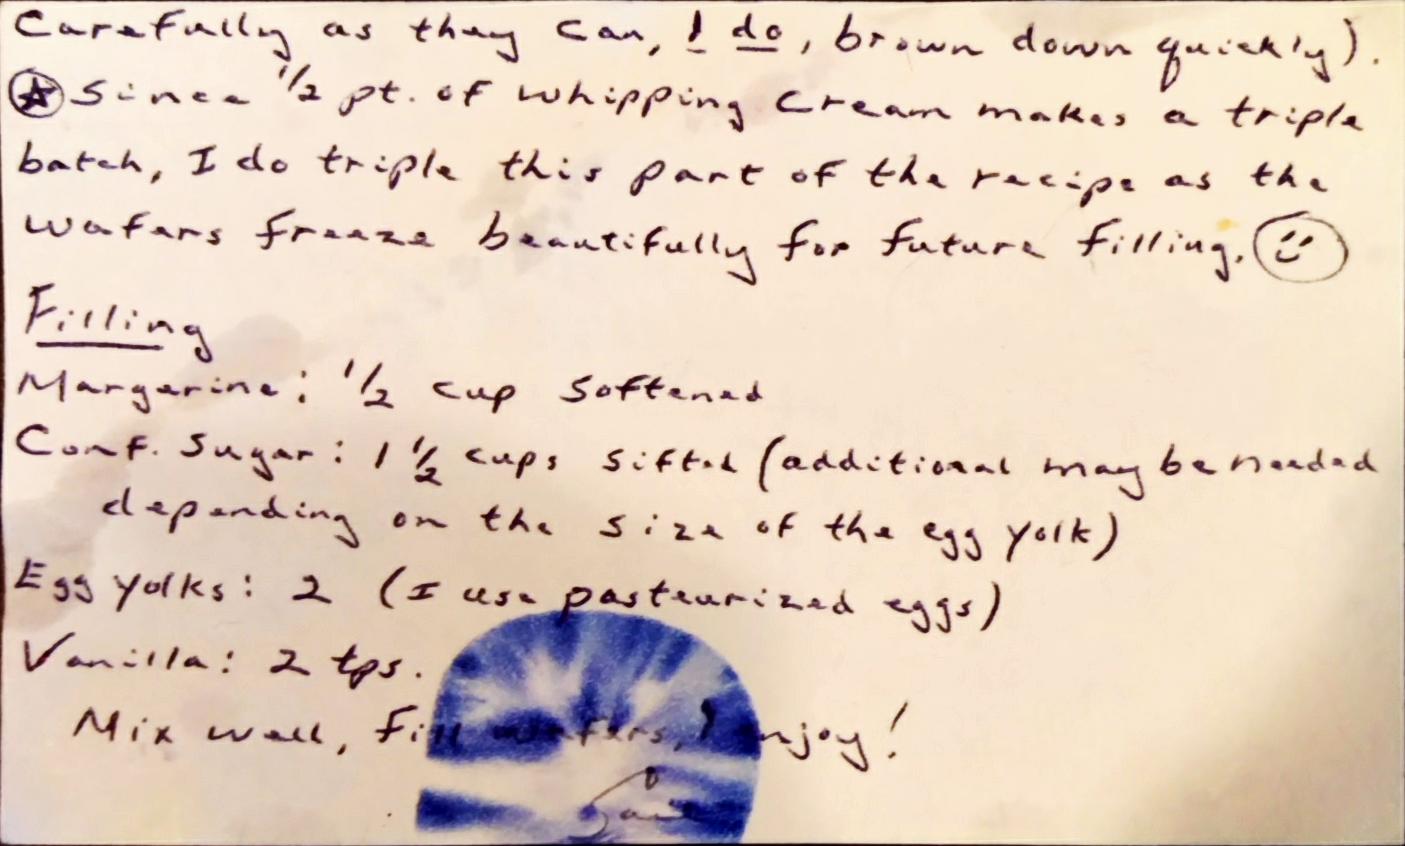 Carefully as they can, I do, brown down quickly).
Since 1/2 pt. of whipping cream makes a triple
batch, I do triple this part of the recipe as the
wafers freeze beautifully for future filling.
Filling
Margerine: 1/2 cup softened
Conf. Sugar: 1 1/2 cups sifted (additional may be needed
depending on the size of the egg yolk)
Egg yolks: 2 (I use pasteurized eggs)
Vanilla: 2 tps.
Mix well, fill wafers, enjoy!